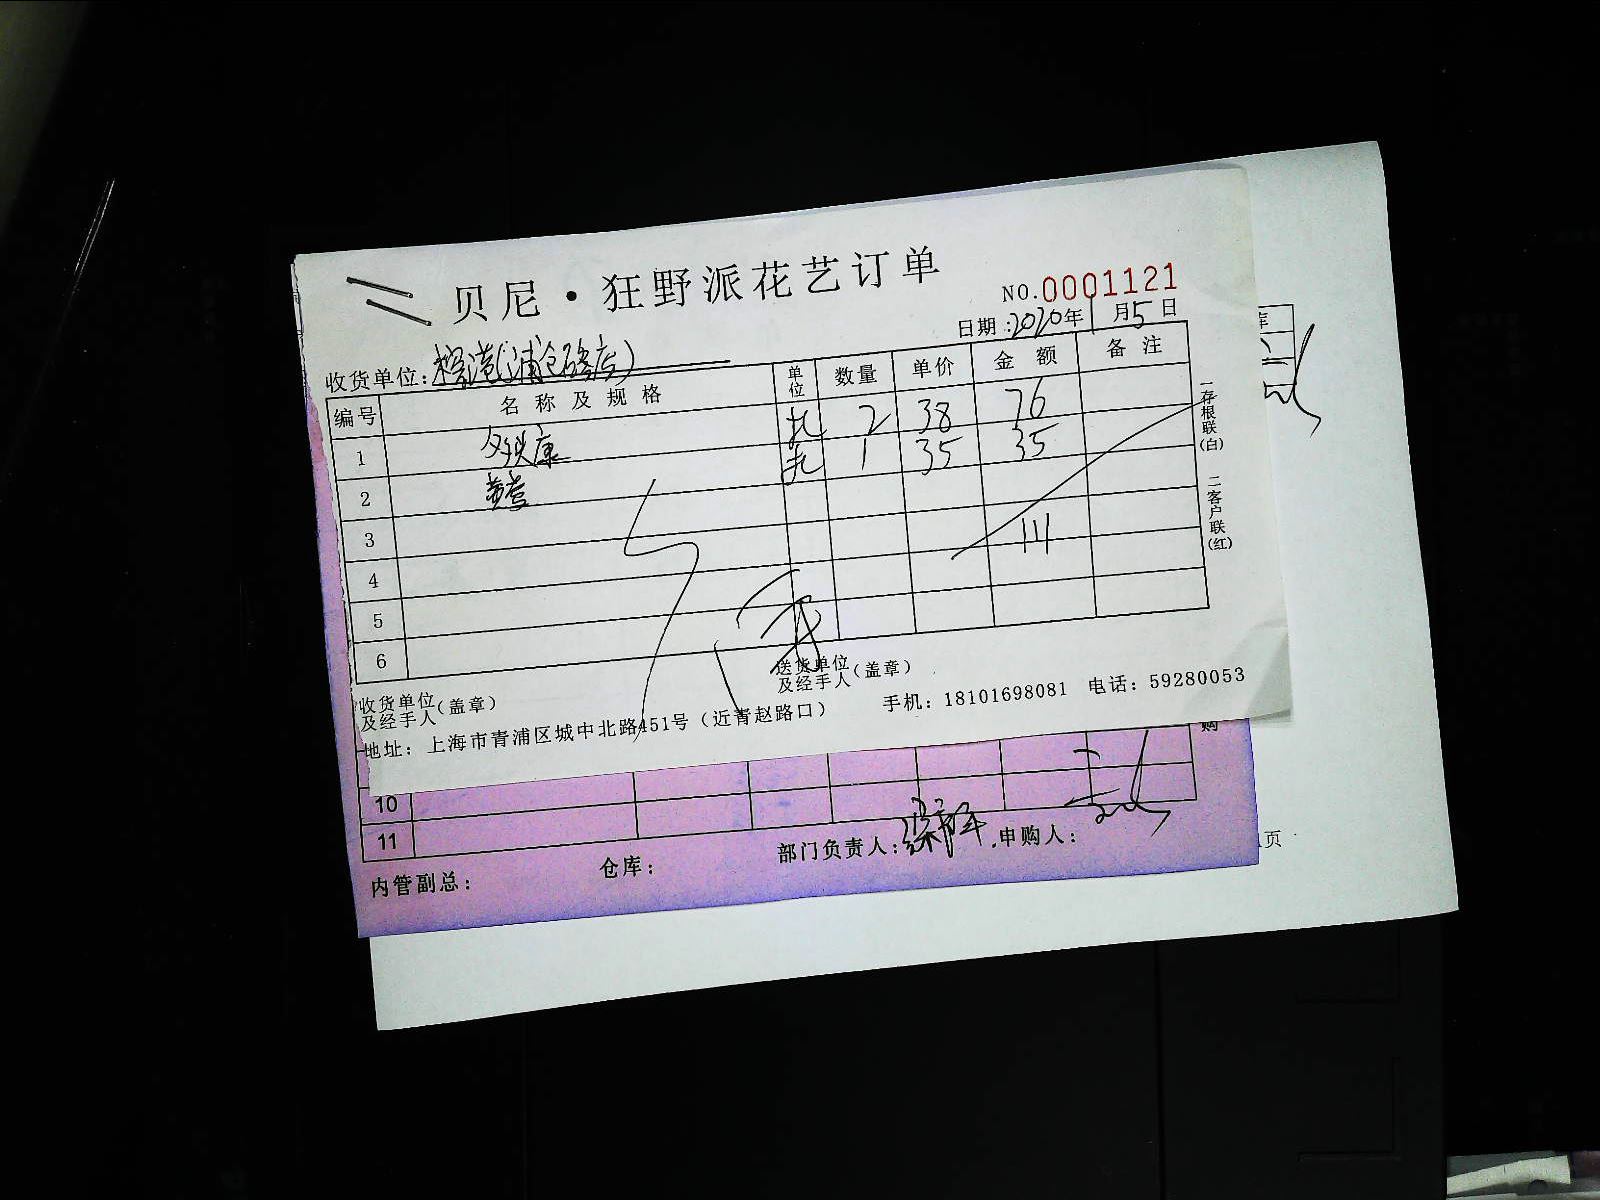 贝尼·狂野派花艺订单
NO.0001121
日期:2020年1月5日
收货单位:
编号 名称及规格 单位 数量 单价 金额 备注
1 多头康 扎 2 38 76
2 黄莺 扎 1 35 35
3
4 111
5
6
一存根联(白) 二客户联(红)
收货单位及经手人(盖章)
送货单位及经手人(盖章)
地址: 上海市青浦区城中北路451号(近青赵路口) 手机: 18101698081 电话: 59280053
库
购
10
11
内管副总: 仓库: 部门负责人: 申购人:
页